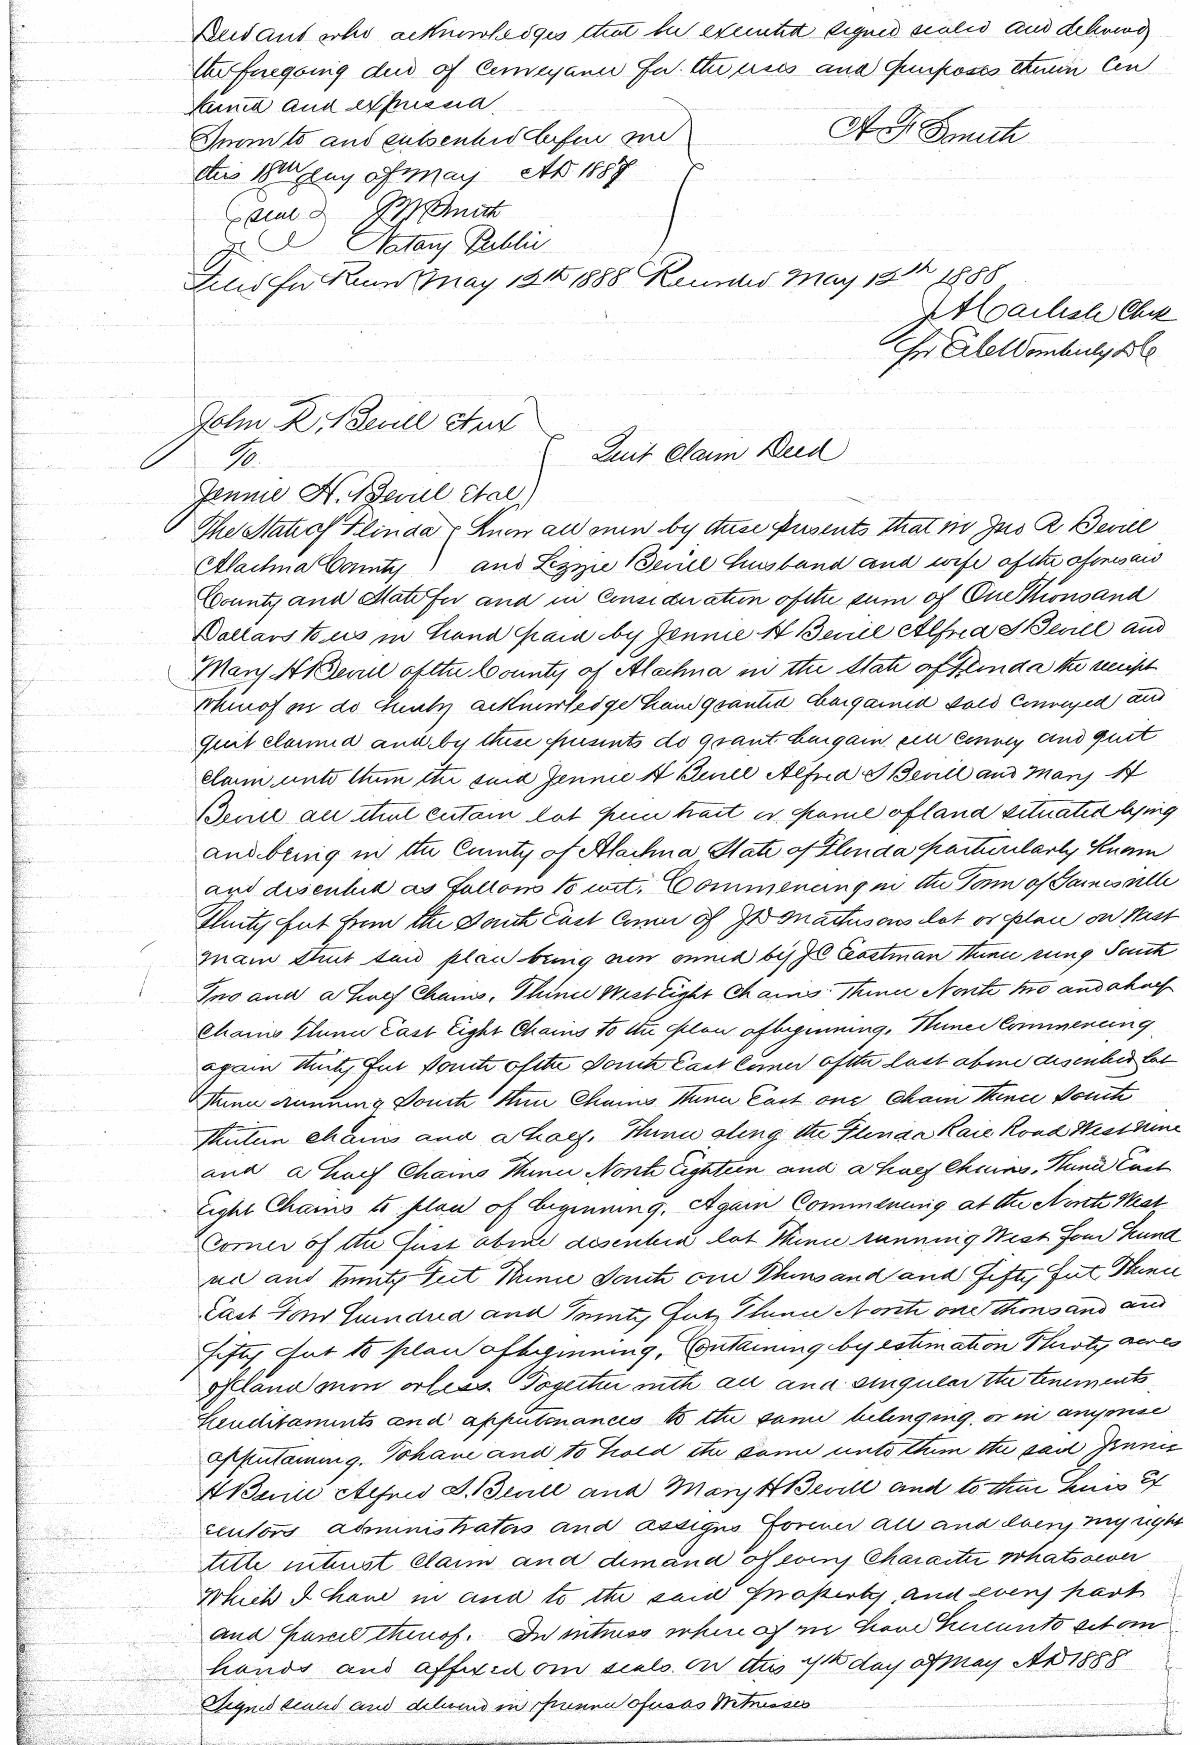 who acknowledges that he executed signed sealed and delivered
the foregoing deed of Conveyance for the uses and purposes therein Con
tained and expressed
Sworn to and subscribed before me
A F Smith
this 18th day of May AD 1887
(seal) Smith
Notary Public
Filed for Record May 12th 1888 Recorded May 12th 1888
Clerk
for
John R. Bevill et ux
To
Quit Claim Deed
Jennie H. Bevill et al
The State of Florida Know all men by these presents that we Jno R Bevill
Alachua County and Lizzie Bevill husband and wife of the aforesaid
County and State for and in Consideration of the sum of One Thousand
Dollars to us in hand paid by Jennie H Bevill Alfred S Bevill and
Mary H Bevill of the County of Alachua in the State of Florida the receipt
whereof we do hereby acknowledge have granted bargained sold conveyed and
quit claimed and by these presents do grant bargain sell convey and quit
claim unto them the said Jennie H Bevill Alfred S Bevill and Mary H
Bevill all that certain lot piece tract or parcel of land situated lying
and being in the County of Alachua State of Florida particularly known
and described as follows to wit. Commencing in the Town of Gainesville
Thirty feet from the South East Corner of J D Mathesons lot or place on West
main Street said place being now owned by J C Eastman thence rung South
Two and a half Chains. Thence West Eight Chains Thence North two and a half
Chains Thence East Eight Chains to the place of beginning. Thence Commencing
again thirty feet South of the South East Corner of the last above described lot
thence running South three Chains Thence East one Chain thence South
thirteen chains and a half. Thence along the Florida Rail Road West nine
and a half Chains Thence North Eighteen and a half Chains. Thence East
Eight Chains to place of beginning. Again Commencing at the North West
Corner of the first above described lot Thence running West four hund
red and twenty feet Thence South one Thousand and fifty feet Thence
East Four hundred and Twenty feet Thence North one thousand and
fifty feet to place of beginning. Containing by estimation Thirty acres
of land more or less. Together with all and singular the tenements
hereditaments and appurtenances to the same belonging or in anywise
appertaining. To have and to hold the same unto them the said Jennie
H Bevill Alfred S. Bevill and Mary H Bevill and to their heirs Ex
ecutors administrators and assigns forever all and every my right
title interest claim and demand of every Character whatsoever
which I have in and to the said property and every part
and parcel thereof. In witness where of we have hereunto set our
hands and affixed our seals on this 7th day of May AD 1888
Signed sealed and delivered in presence of us as Witnesses